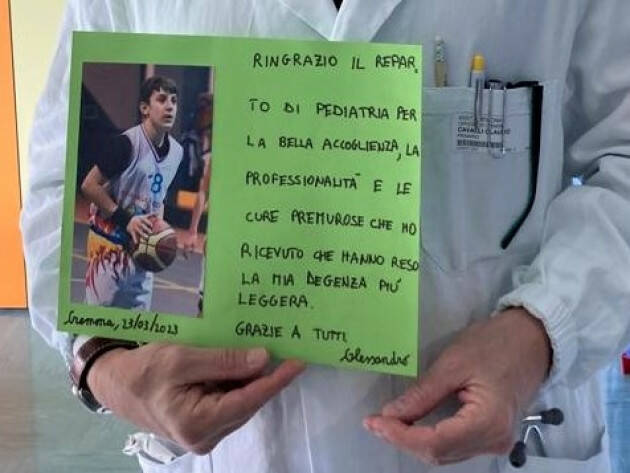 RINGRAZIO IL REPAR.
TO DI PEDIATRIA PER
LA BELLA ACCOGLIENZA, LA
PROFESSIONALITÀ E LE
CURE PREMUROSE CHE HO
RICEVUTO CHE HANNO RESO
LA MIA DEGENZA PIÙ
LEGGERA.
GRAZIE A TUTTI
Cremona, 23/03/2023
Alessandro
8
CAVALLI CLAUDIO